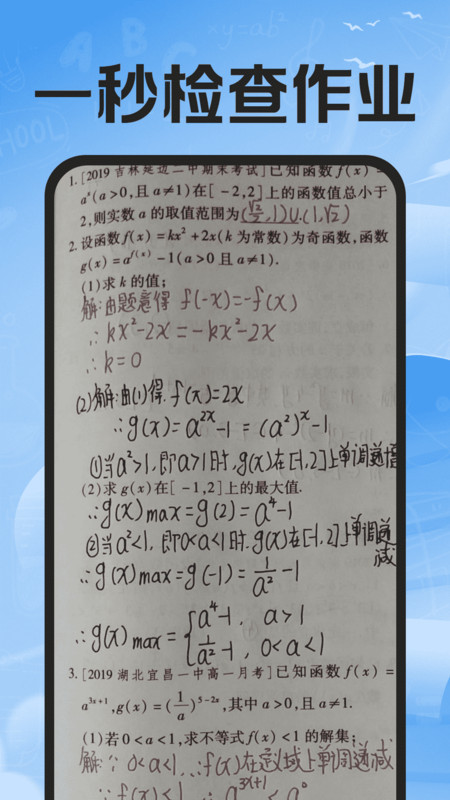 一秒检查作业
1. [2019 吉林延边二中期末考试]已知函数 f(x) =
aˣ(a>0,且 a≠1)在[-2,2]上的函数值总小于
2,则实数 a 的取值范围为(√2/2,1)∪(1,√2)
2. 设函数f(x)=kx²+2x(k 为常数)为奇函数,函数
g(x)=a^{f(x)}-1(a>0 且 a≠1).
(1)求 k 的值;
解:由题意得 f(-x)=-f(x)
∴kx²-2x=-kx²-2x
∴k=0
(2)解:由(1)得.f(x)=2x
∴g(x)=a^{2x}-1=(a²)ˣ-1
①当a²>1,即a>1时,g(x)在[-1,2]上单调递增
(2)求 g(x)在[-1,2]上的最大值.
∴g(x)max=g(2)=a⁴-1
②当a²<1,即0<a<1时.g(x)在[-1,2]上单调递减
∴g(x)max=g(-1)=1/a²-1
∴g(x)max={a⁴-1, a>1
1/a²-1, 0<a<1
3. [2019 湖北宜昌一中高一月考]已知函数 f(x) =
a^{3x+1},g(x)=(1/a)^{5-2x},其中 a>0,且 a≠1.
(1)若 0<a<1,求不等式 f(x)<1 的解集;
解:∵0<a<1,∴f(x)在定义域上单调递减
∴f(x)<1 ∴a^{3x+1}<a⁰